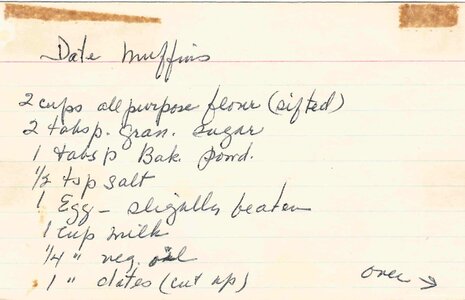 Date Muffins
2 cups all purpose flour (sifted)
2 tabsp. gran. sugar
1 tabsp Bak Powd.
1/2 tsp salt
1 Egg - slightly beaten
1 cup milk
1/4 " veg. oil
1 " dates (cut up)
over →